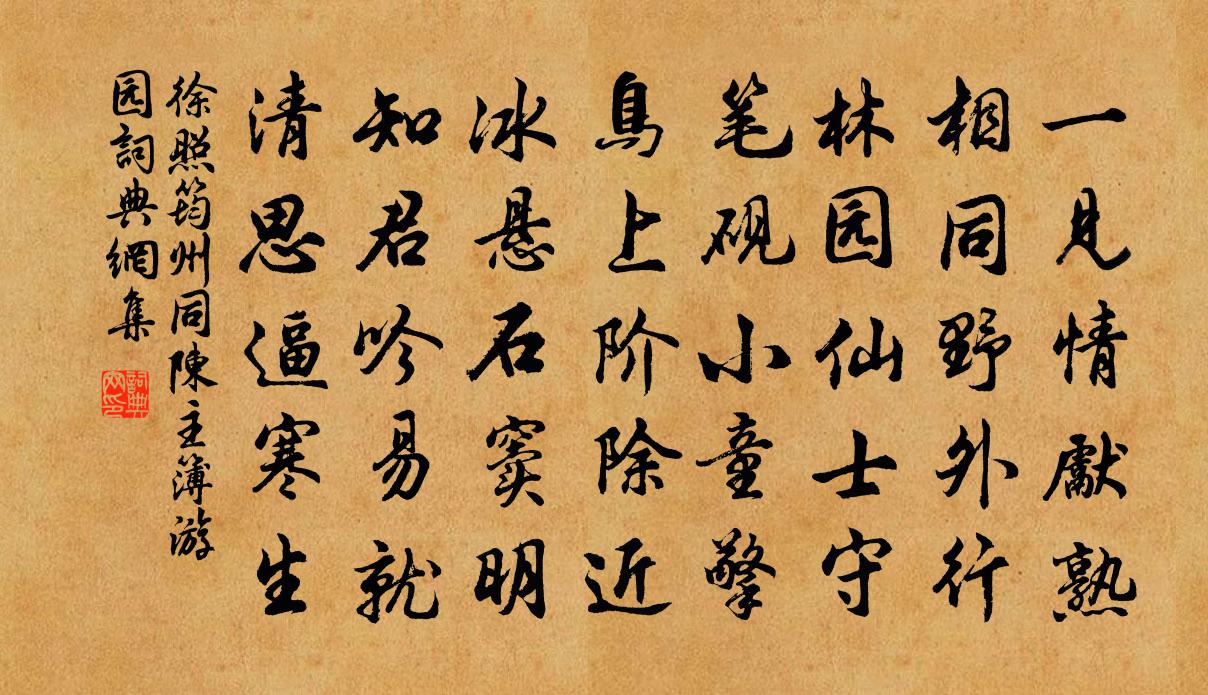 一见情獻熟
相同野外行
林园仙士守
笔砚小童擎
鳥上阶除近
冰悬石窦明
知君吟易就
清思逼寒生
徐照筠州同陳主簿游
园詞典網集
詞典网印